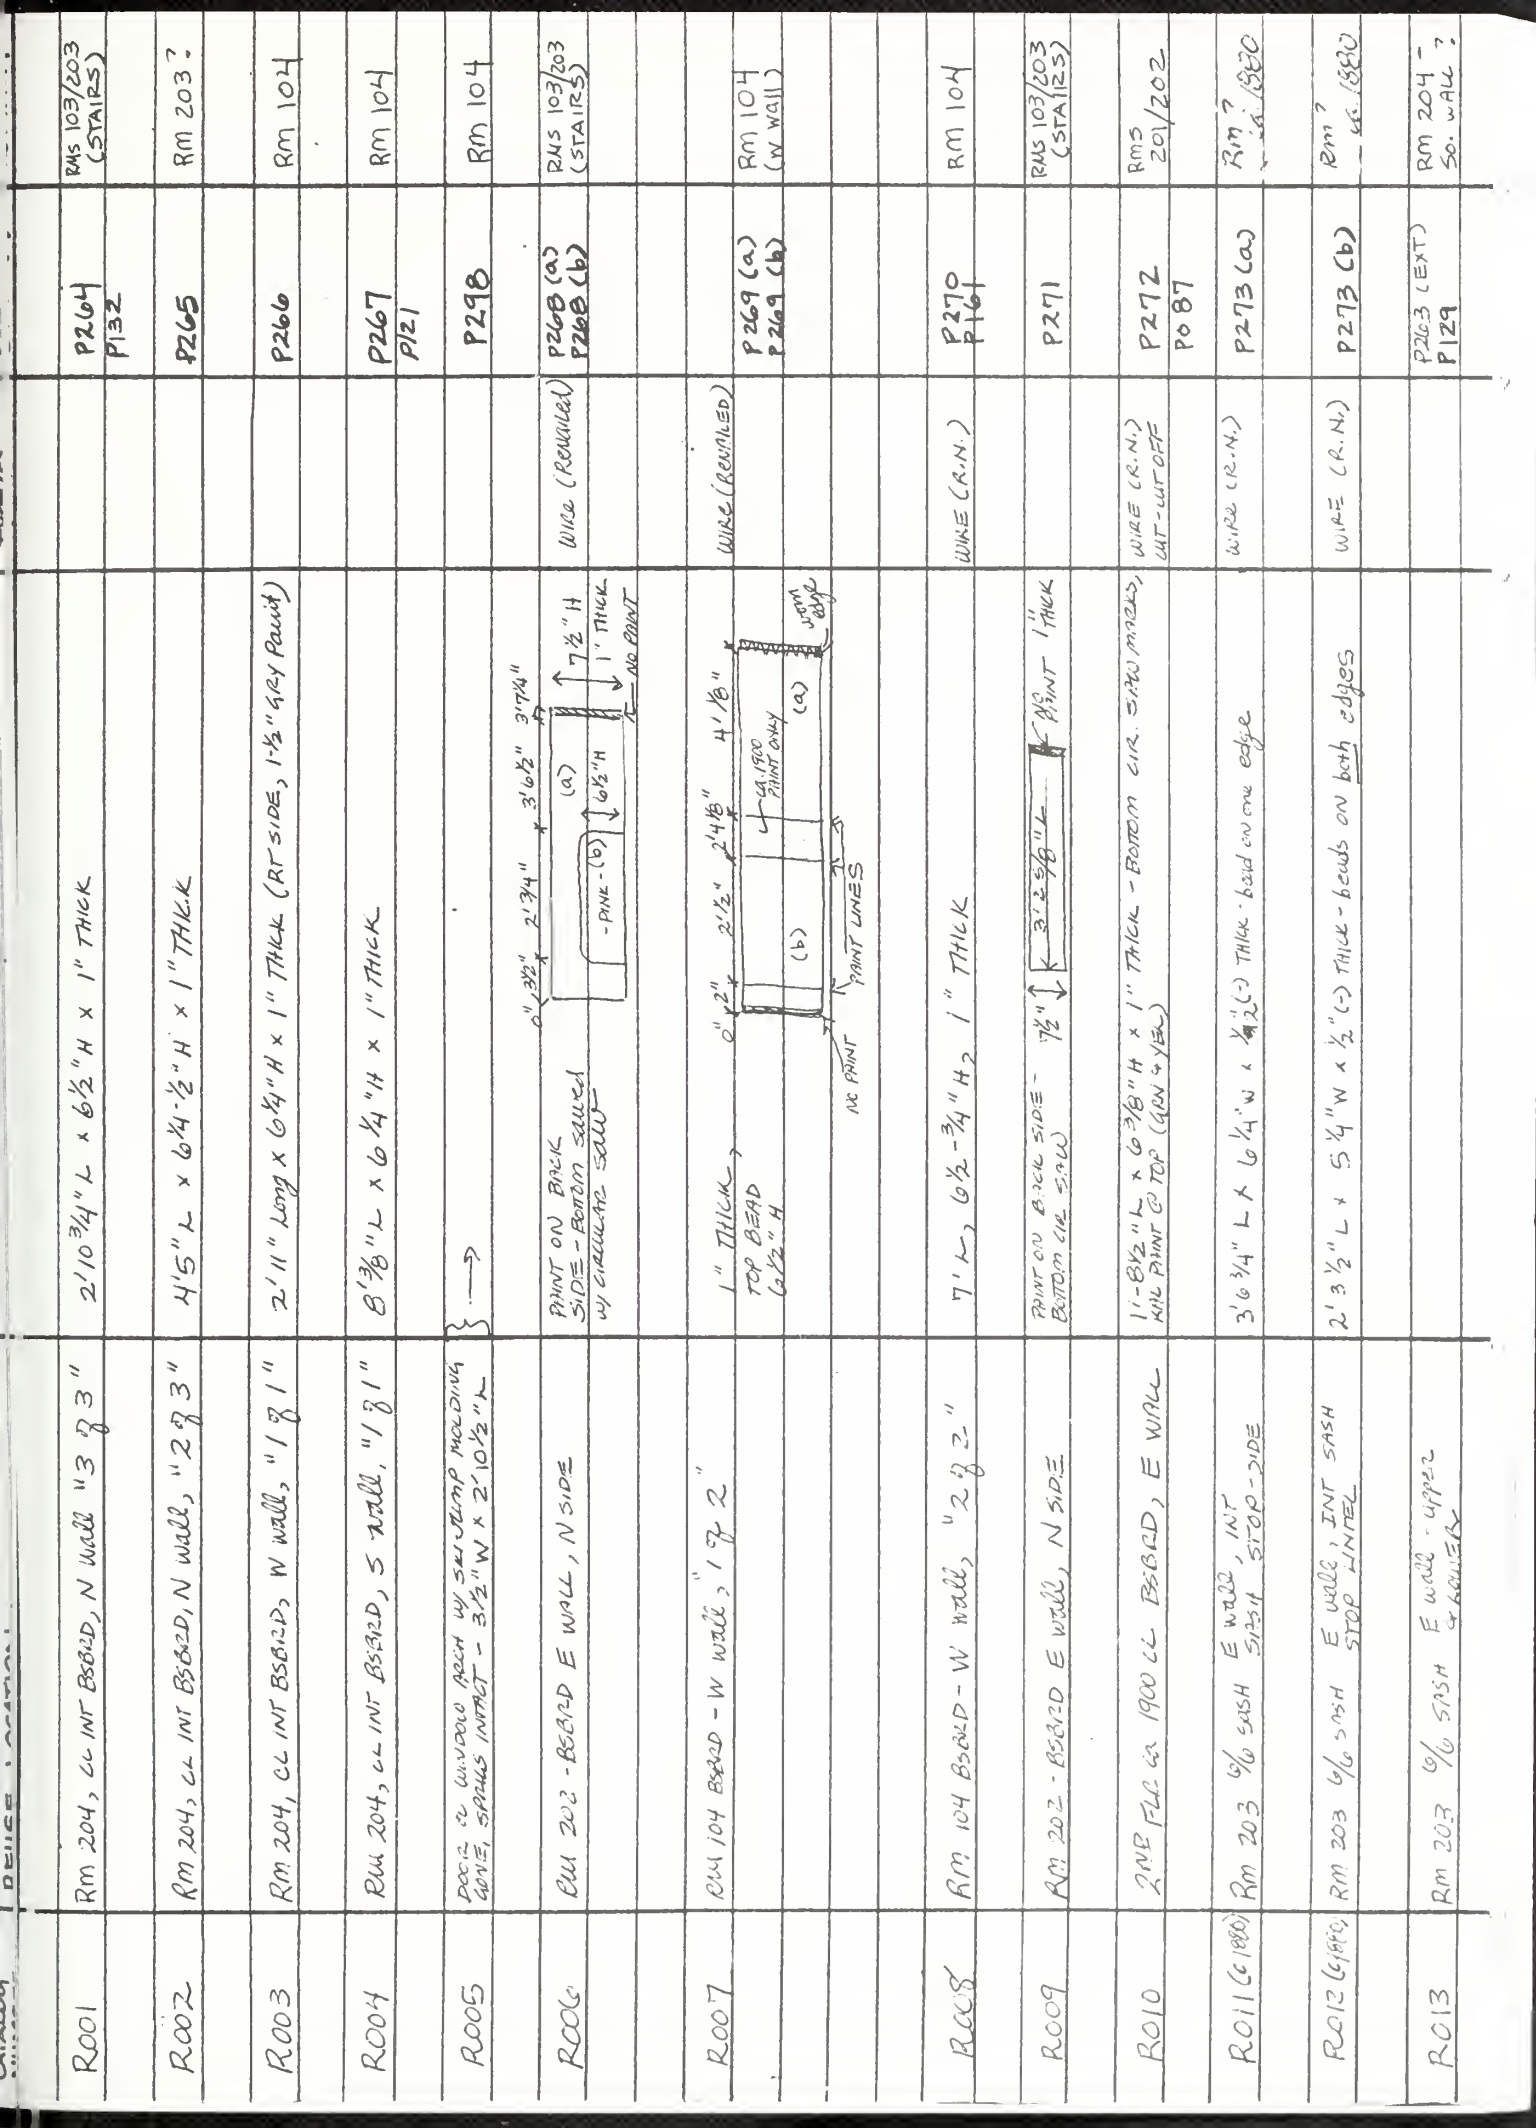 R001
Rm 204, CL INT BSBRD, N Wall "3 of 3"
2' 10 3/4" L x 6 1/2" H x 1" THICK
P264
P132
RMS 103/203
(STAIRS)
R002
Rm 204, CL INT BSBRD, N Wall, "2 of 3"
4'5" L x 6 1/4-1/2" H x 1" THICK
P265
RM 203?
R003
Rm 204, CL INT BSBRD, W Wall, "1 of 1"
2' 11" Long x 6 1/4" H x 1" THICK (RT SIDE, 1-1/2" GRY Paint)
P266
RM 104
R004
RM 204, CL INT BSBRD, S Wall, "1 of 1"
8' 3/8" L x 6 1/4" H x 1" THICK
P267
P121
RM 104
R005
DOOR or WINDOW ARCH W/ SKI JUMP MOLDING
GONE, SPRIGS INTACT - 3 1/2" W x 2' 10 1/2" L
P298
RM 104
R006
RM 202 - BSBRD E WALL, N SIDE
PAINT ON BACK
SIDE - BOTTOM sawed
W/ CIRCULAR SAW
0" 3 1/2" 2' 3/4" 3' 6 1/2" 3' 7 1/4"
(a)
- PINK - (b)
6 1/2" H
7 1/2" H
1" THICK
NO PAINT
WIRE (Renailed)
P268 (a)
P268 (b)
RMS 103/203
(STAIRS)
R007
RM 104 BSBRD - W Wall, "1 of 2"
1" THICK,
TOP BEAD
6 1/2" H
0" 2" 2' 1/2" 2' 4 1/8" 4' 1/8"
(b)
ca. 1900
PAINT ONLY
(a)
worn
edge
NO PAINT
PAINT LINES
WIRE (RENAILED)
P269 (a)
P269 (b)
RM 104
(W Wall)
R008
RM 104 BSBRD - W Wall, "2 of 2"
7' L, 6 1/2-3/4" H, 1" THICK
WIRE (R.N.)
P270
P161
RM 104
R009
RM 202 - BSBRD E Wall, N SIDE
PAINT ON BACK SIDE -
BOTTOM CIR SAW
7 1/2"
3' 2 5/8" L
PAINT 1" THICK
P271
RMS 103/203
(STAIRS)
R010
2ND FLR ca 1900 CL BSBRD, E WALL
1'-8 1/2" L x 6 3/8" H x 1" THICK - BOTTOM CIR. SAW MARKS,
PAINT @ TOP (GRN & YEL)
WIRE (R.N.)
CUT-CUT OFF
P272
P087
RMS
201/202
R011 (c1880)
Rm 203 6/6 SASH E Wall, INT
SASH STOP-SIDE
3' 6 3/4" L x 6 1/4" W x 1/2" (-) THICK - bead on one edge
WIRE (R.N.)
P273 (a)
Rm?
ca. 1880
R012 (c1880)
Rm 203 6/6 SASH E Wall, INT SASH
STOP LINTEL
2' 3 1/2" L x 5 1/4" W x 1/2" (-) THICK - beads on both edges
WIRE (R.N.)
P273 (b)
Rm?
ca. 1880
R013
Rm 203 6/6 SASH E Wall - upper
& LOWER
P263 (EXT)
P129
RM 204 -
SO. WALL?